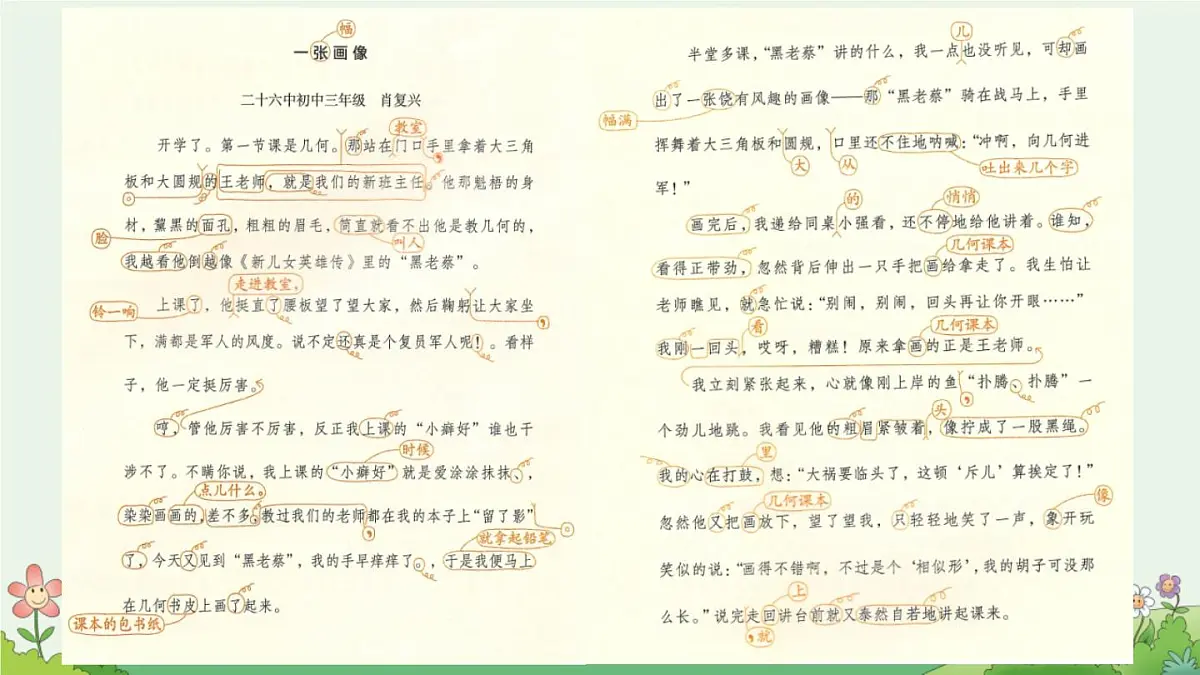 幅
一张画像
二十六中初中三年级 肖复兴
教室
开学了。第一节课是几何。那站在门口手里拿着大三角
板和大圆规的王老师，就是我们的新班主任。他那魁梧的身
材，黧黑的面孔，粗粗的眉毛，简直就看不出他是教几何的，
脸
叫人
我越看他倒越像《新儿女英雄传》里的“黑老蔡”。
走进教室，
铃一响
上课了，他挺直了腰板望了望大家，然后鞠躬让大家坐
下，满都是军人的风度。说不定还真是个复员军人呢！。看样
子，他一定挺厉害。
哼，管他厉害不厉害，反正我上课的“小癖好”谁也干
时候
涉不了。不瞒你说，我上课的“小癖好”就是爱涂涂抹抹、，
点儿什么。
染染画画的，差不多，教过我们的老师都在我的本子上“留了影”
就拿起铅笔
了，今天又见到“黑老蔡”，我的手早痒痒了。，于是我便马上
在几何书皮上画了起来。
课本的包书纸
儿
半堂多课，“黑老蔡”讲的什么，我一点也没听见，可却画
出了一张饶有风趣的画像——那“黑老蔡”骑在战马上，手里
幅满
挥舞着大三角板和圆规，口里还不住地呐喊：“冲啊，向几何进
大
从
吐出来几个字
军！”
的
悄悄
画完后，我递给同桌小强看，还不停地给他讲着。谁知，
几何课本
看得正带劲，忽然背后伸出一只手把画给拿走了。我生怕让
老师瞧见，就急忙说：“别闹，别闹，回头再让你开眼……”
看
几何课本
我刚一回头，哎呀，糟糕！原来拿画的正是王老师。
我立刻紧张起来，心就像刚上岸的鱼“扑腾、扑腾”一
头
个劲儿地跳。我看见他的粗眉紧皱着，像拧成了一股黑绳。
里
我的心在打鼓，想：“大祸要临头了，这顿‘斥儿’算挨定了！”
几何课本
像
忽然他又把画放下，望了望我，只轻轻地笑了一声，象开玩
笑似的说：“画得不错啊，不过是个‘相似形’，我的胡子可没那
上
么长。”说完走回讲台前就又泰然自若地讲起课来。
，就